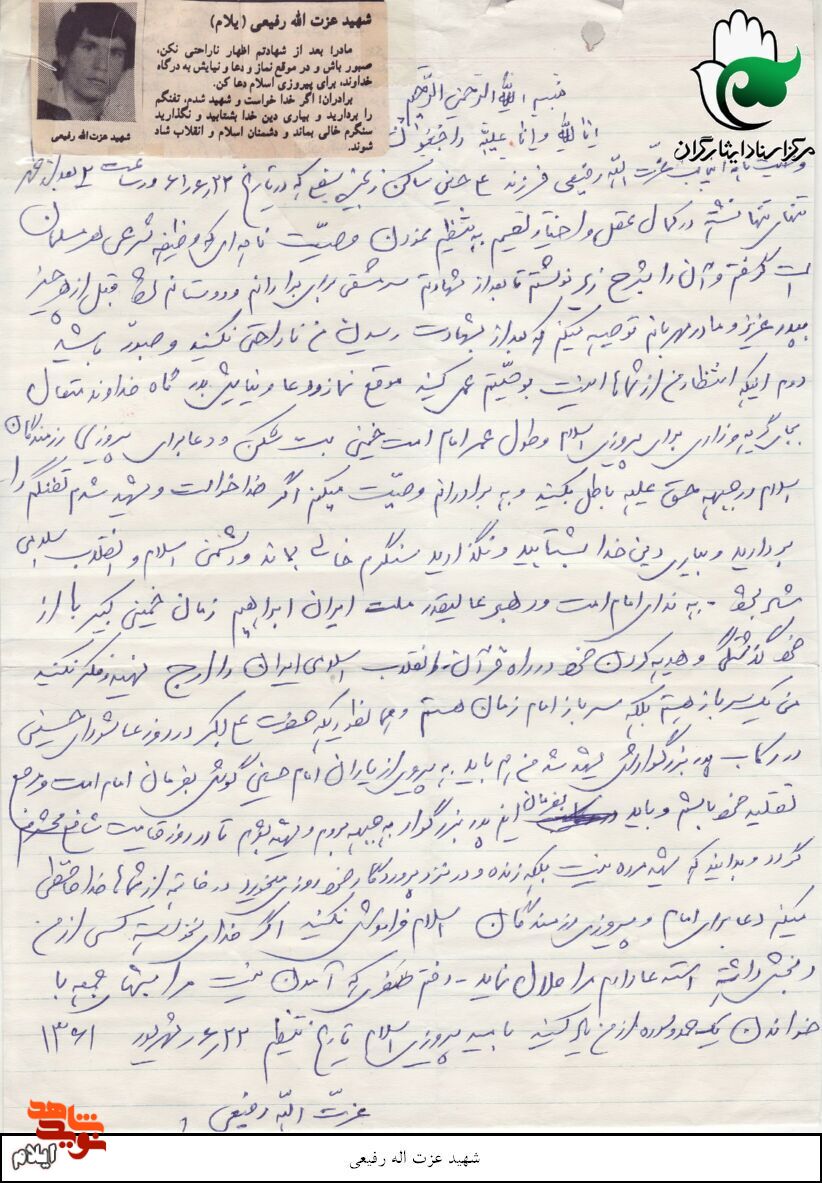 شهید عزت الله رفیعی (ایلام)
مادر! بعد از شهادتم اظهار ناراحتی نکن،
صبور باش و در موقع نماز و دعا و نیایش به درگاه
خداوند، برای پیروزی اسلام دعا کن.
برادران! اگر خدا خواست و شهید شدم، تفنگم
را بردارید و بیاری دین خدا بشتابید و نگذارید
سنگرم خالی بماند و دشمنان اسلام و انقلاب شاد
شوند.
شهید عزت‌الله رفیعی
مرکز اسناد ایثارگران
بسم الله الرحمن الرحیم
انا لله و انا علیه راجعون
عزت الله رفیعی فرزند ساکن که در تاریخ ۶۱/۶/۲۲ و ساعت ۲ بعد از ظهر
تنهای تنها نشسته در کمال عقل و اختیار تصمیم به تنظیم نمودن وصیت نامه‌ای که وظیفه شرعی هر مسلمان
است گرفتم و آن را بشرح زیر نوشتم تا بعد از شهادتم سرمشقی برای برادرانم و دوستانم قبل از هر چیز
بپدر عزیز و مادر مهربانم توصیه میکنم که بعد از بشهادت رسیدن من ناراحتی نکنید و صبور باشید
دوم اینکه انتظار من از شماها اینست بوصیتم عمل کنید موقع نماز و دعا و نیایش بدرگاه خداوند متعال
بجای گریه و زاری برای پیروزی اسلام و طول عمر امام امت خمینی بت شکن و دعا برای پیروزی رزمندگان
اسلام در جبهه حق علیه باطل بکنید و به برادرانم وصیت میکنم اگر خدا خواست و شهید شدم تفنگم را
بردارید و بیاری دین خدا بشتابید و نگذارید سنگرم خالی بماند و دشمن اسلام و انقلاب اسلامی
به ندای امام امت و رهبر عالیقدر ملت ایران ابراهیم زمان خمینی کبیر با از
خود گذشتگی و هدیه کردن خود در راه قرآن و انقلاب اسلامی ایران را ارج نهید و فکر نکنید
من یک سرباز هستم بلکه سرباز امام زمان هستم و همانطوریکه حضرت علی اکبر در روز عاشورای حسینی
در رکاب پدر بزرگوارش شهید شد من هم باید به پیروی از یاران امام حسین گوش بفرمان امام امت و مرجع
تقلید خود باشم و باید بفرمان این پدر بزرگوار به جبهه بروم و شهید بشوم تا در روز قیامت شافع محشرم
گردد و بدانید که شهید مرده نیست بلکه زنده و در نزد پروردگار خود روزی میخورد در خاتمه از شماها خداحافظی
میکنم دعا برای امام و پیروزی رزمندگان اسلام فراموش نکنید اگر خدای نخواسته کسی از من
رنجشی داشته استدعا دارم مرا حلال نماید - که آمدن نیست مرا شبهای جمعه با
خواندن یک حمد و سوره از من یاد کنید بامید پیروزی اسلام تاریخ تنظیم ۲۲/۶/ شهریور ۱۳۶۱
عزت الله رفیعی
نوید شاهد
ایلام
شهید عزت اله رفیعی